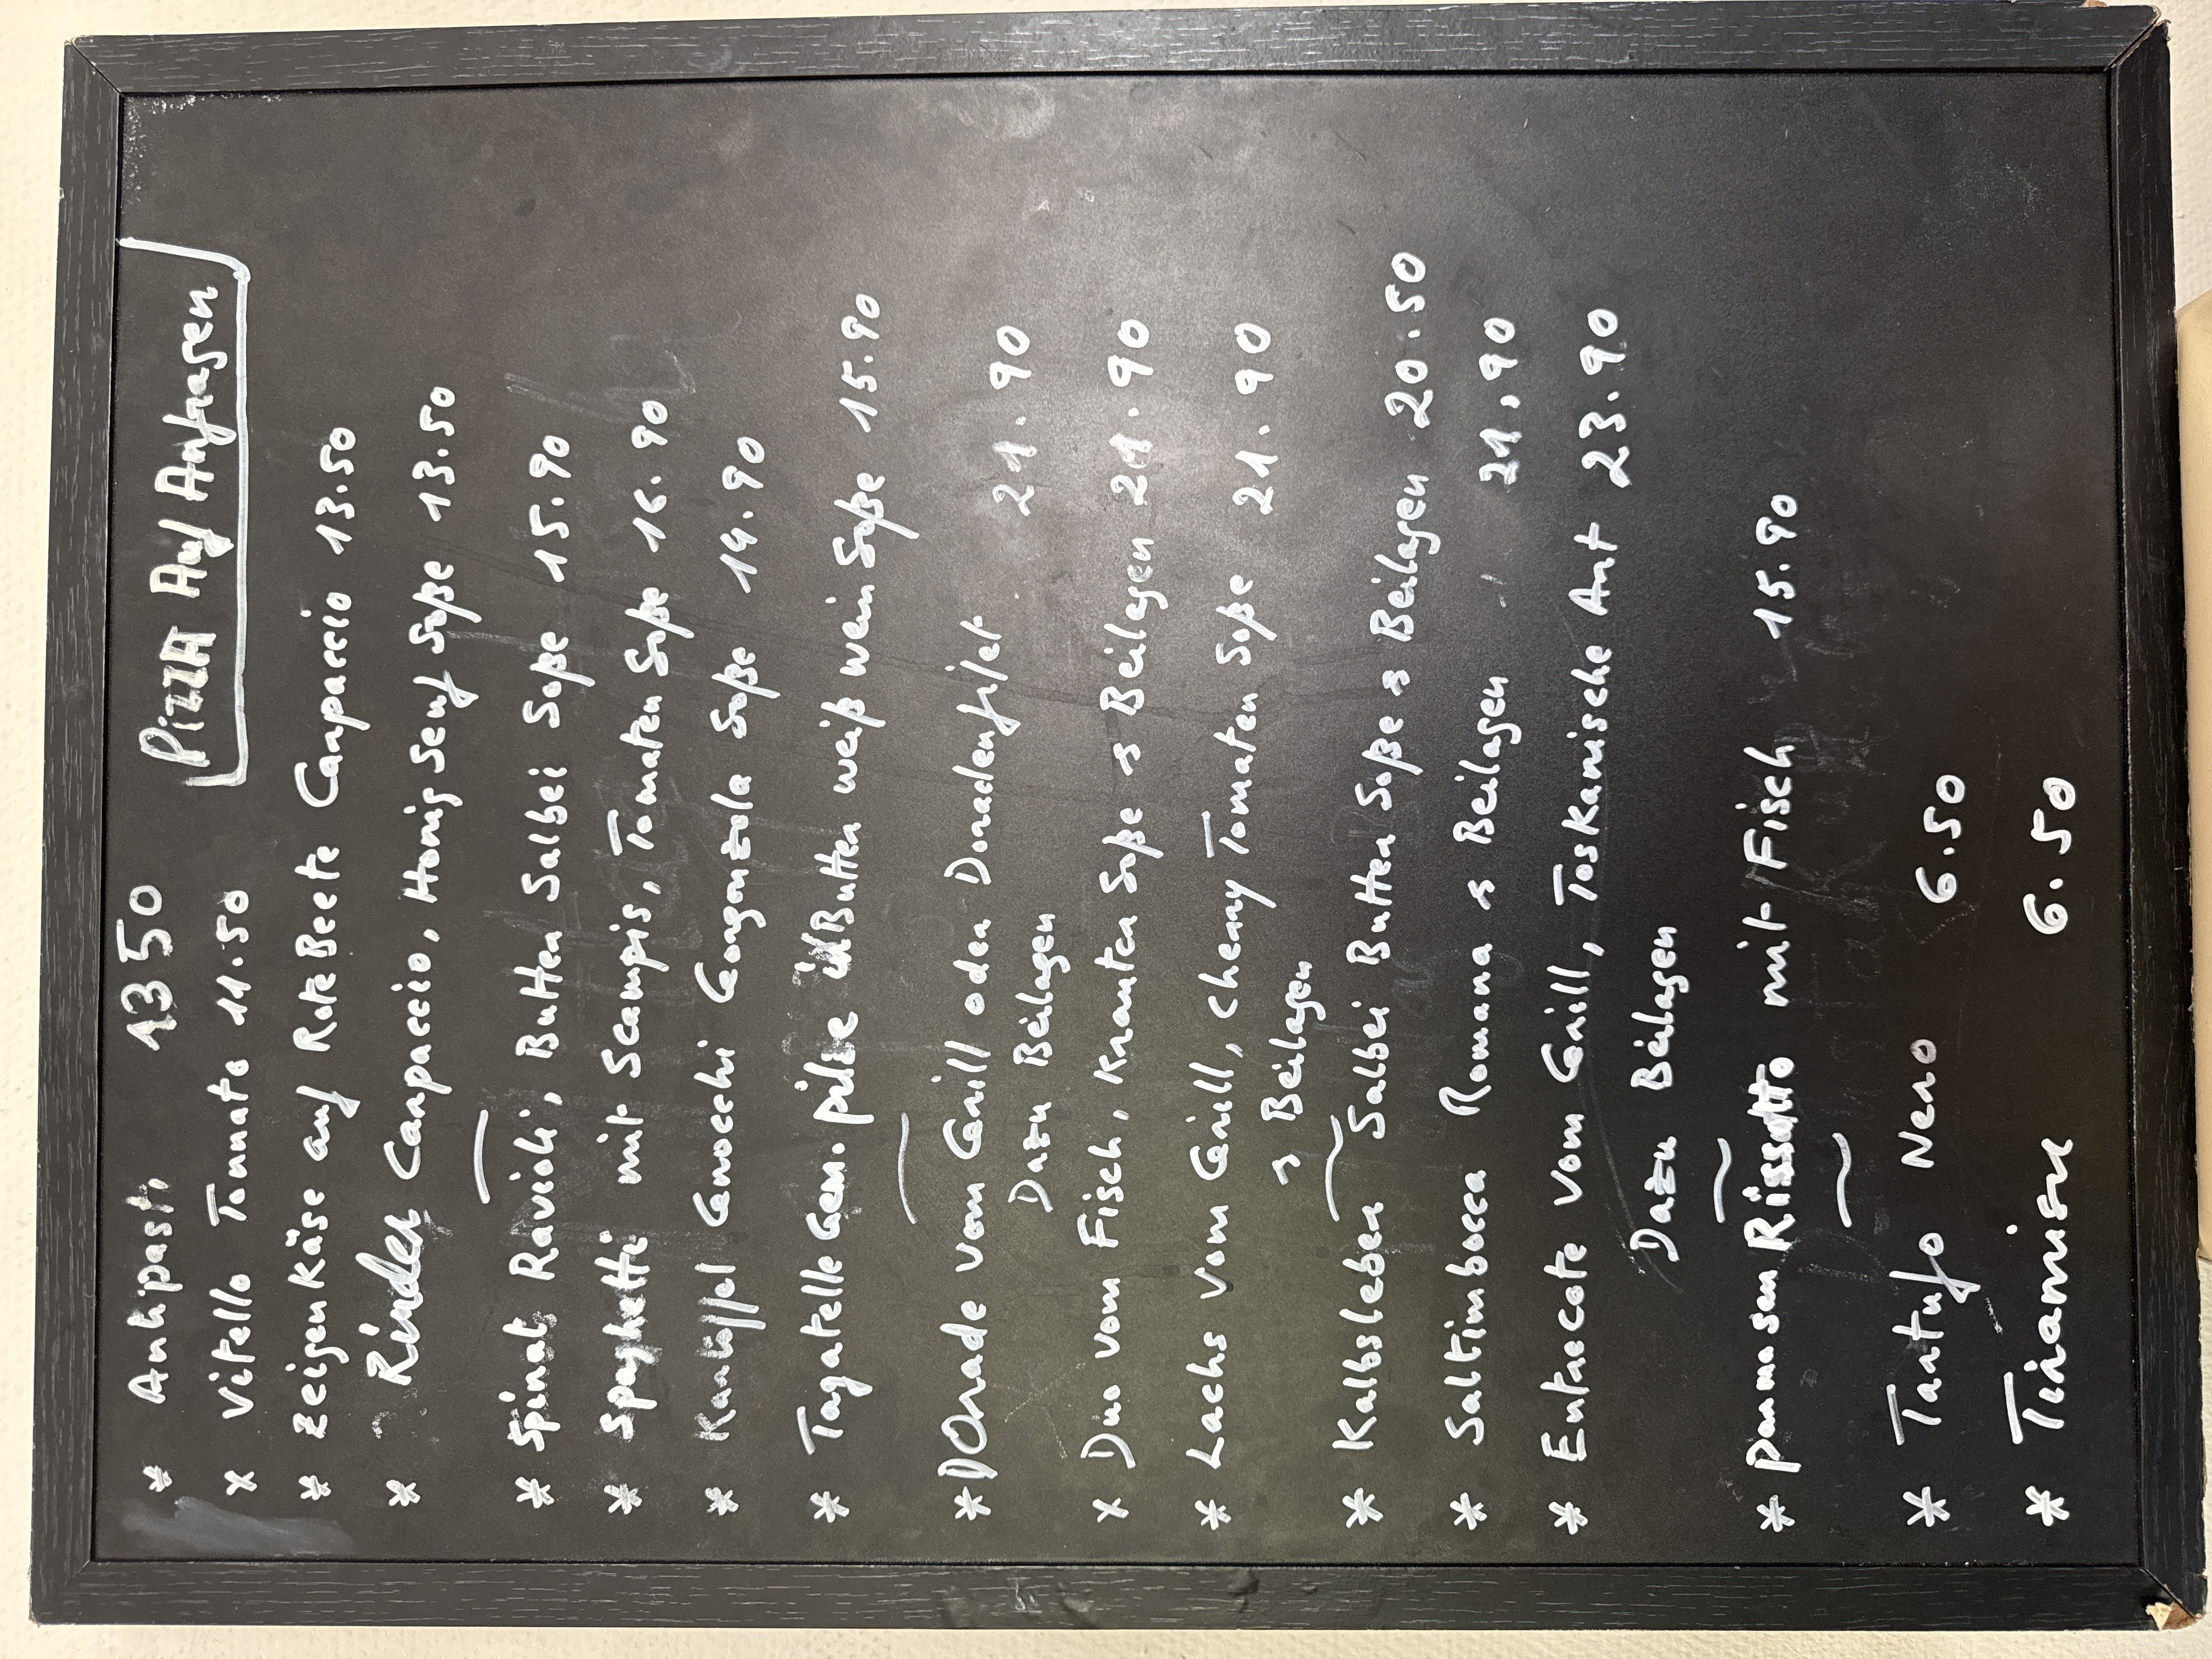 * Antipasti 13 50
Pizza Auf Anfragen
x Vitello Tonnato 11.50
* Zeigenkäse auf RoteBeete Carpaccio 13.50
* Rinder Carpaccio, Honig Senf Soße 13.50
* Spinat Ravioli, Butter Salbei Soße 15.90
* Spaghetti mit Scampis, Tomaten Soße 16.90
* Kartoffel Gnocchi Gorgonzola Soße 14.90
* Tagatelle Gem. pilse in Butter weiß wein Soße 15.90
* DOrade vom Grill oder Doradenfilet 21.90
Dazu Beilagen
x Duo vom Fisch, Kräuter Soße s Beilagen 21.90
* Lachs vom Grill, cherry Tomaten Soße 21.90
s Beilagen
* Kalbsleber Salbei Butter Soße s Beilagen 20.50
* Saltimbocca Romana s Beilagen 21.90
* Entrecote vom Grill, Toskanische Art 23.90
Dazu Beilagen
* parmesan Rissotto mit Fisch 15.90
* Tartufo Nero 6.50
* Tiramisu 6.50